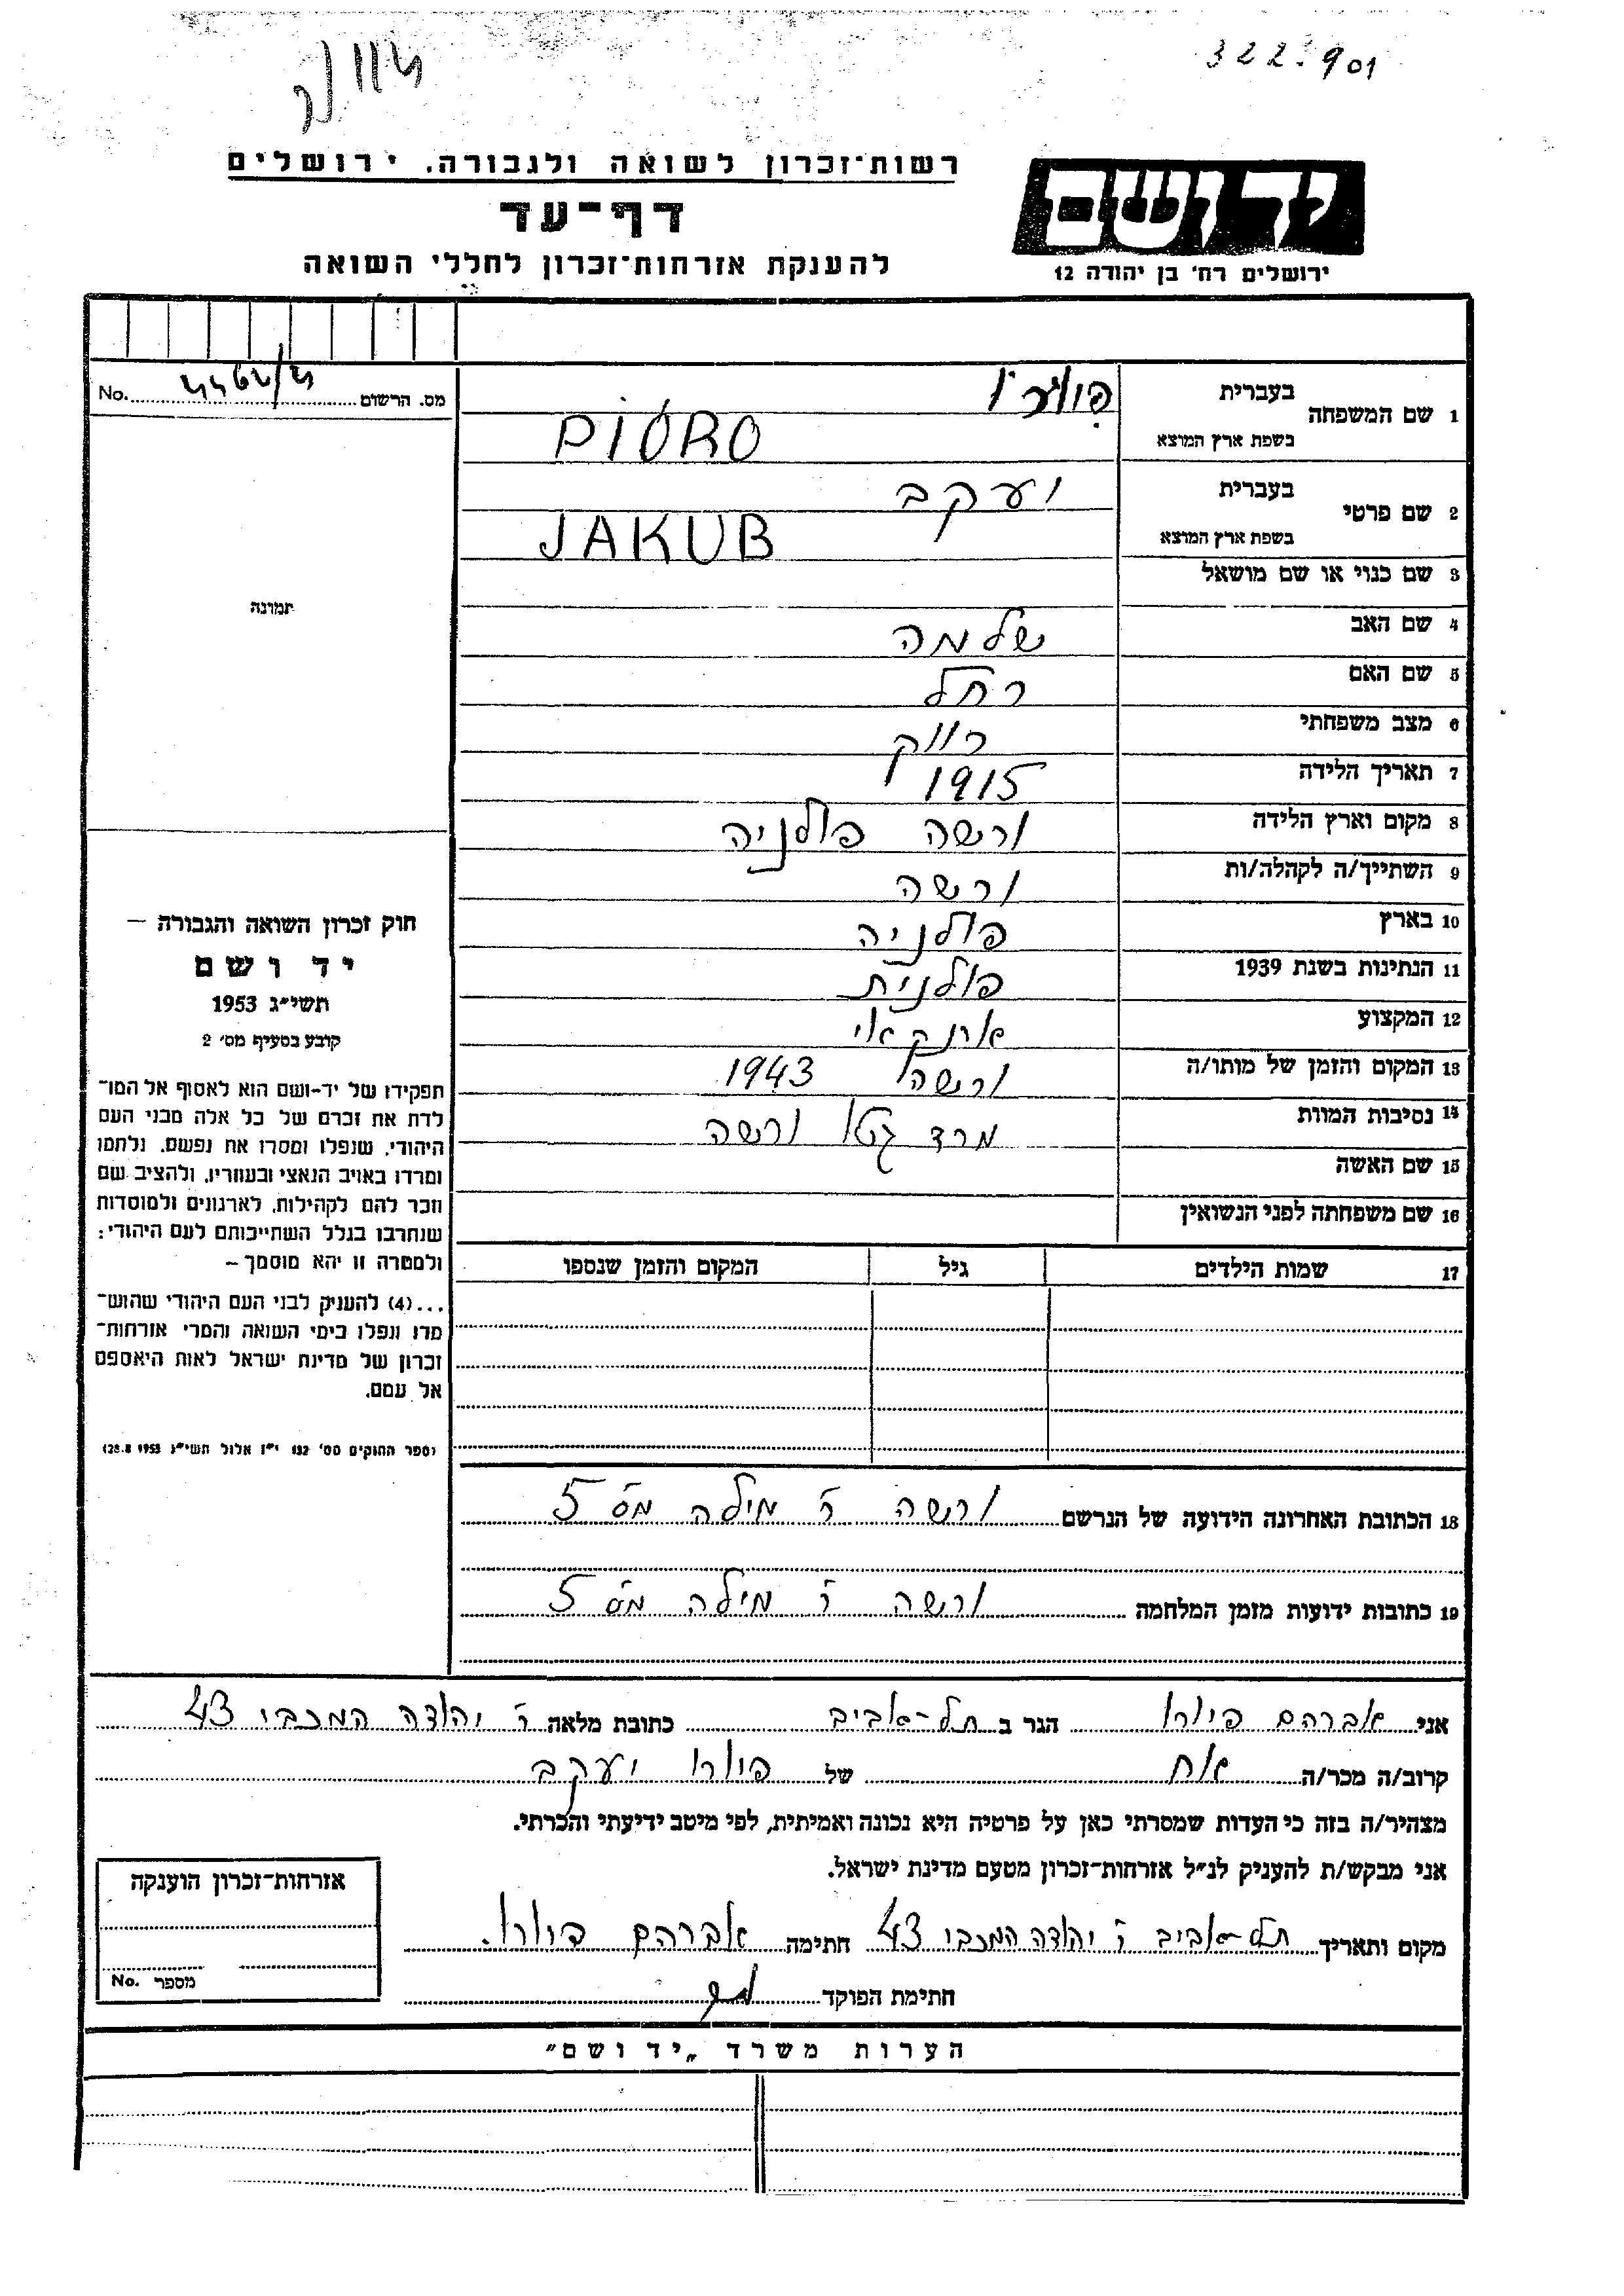 322.901
רשות־זכרון לשואה ולגבורה, ירושלים
דף־עד
להענקת אזרחות־זכרון לחללי השואה
יד ושם
ירושלים רח' בן יהודה 12
מס. הרשום No.
1 שם המשפחה
בעברית
בשפת ארץ המוצא PIÓRO
2 שם פרטי
בעברית יעקב
בשפת ארץ המוצא JAKUB
3 שם כנוי או שם מושאל
4 שם האב שלמה
5 שם האם רחל
6 מצב משפחתי רווק
7 תאריך הלידה 1915
8 מקום וארץ הלידה ורשה פולניה
9 השתייך/ה לקהלה/ות ורשה
10 בארץ פולניה
11 הנתינות בשנת 1939 פולנית
12 המקצוע
13 המקום והזמן של מותו/ה ורשה 1943
14 נסיבות המוות מרד גטו ורשה
15 שם האשה
16 שם משפחתה לפני הנשואין
17 שמות הילדים גיל המקום והזמן שנספו
תמונה
חוק זכרון השואה והגבורה –
יד ושם
תשי״ג 1953
קובע בסעיף מס' 2
תפקידו של יד-ושם הוא לאסוף אל המו־
לדת את זכרם של כל אלה מבני העם
היהודי, שנפלו ומסרו את נפשם, נלחמו
ומרדו באויב הנאצי ובעוזריו, ולהציב שם
וזכר להם לקהילות, לארגונים ולמוסדות
שנחרבו בגלל השתייכותם לעם היהודי;
ולמטרה זו יהא מוסמך –
...(4) להעניק לבני העם היהודי שהוש־
מדו ונפלו בימי השואה והמרי אזרחות־
זכרון של מדינת ישראל לאות היאספם
אל עמם.
(ספר החוקים מס' 132 י״ז אלול תשי״ג 28.8.1953)
18 הכתובת האחרונה הידועה של הנרשם ורשה ר' מילה מס' 5
19 כתובות ידועות מזמן המלחמה ורשה ר' מילה מס' 5
אני אברהם פיורו הגר ב תל-אביב כתובת מלאה ר' יהודה המכבי 43
קרוב/ה מכר/ה אח של פיורו יעקב
מצהיר/ה בזה כי העדות שמסרתי כאן על פרטיה היא נכונה ואמיתית, לפי מיטב ידיעתי והכרתי.
אני מבקש/ת להעניק לנ״ל אזרחות-זכרון מטעם מדינת ישראל.
מקום ותאריך תל-אביב ר' יהודה המכבי 43 חתימה אברהם פיורו.
חתימת הפוקד
אזרחות-זכרון הוענקה
מספר No.
הערות משרד „יד ושם"